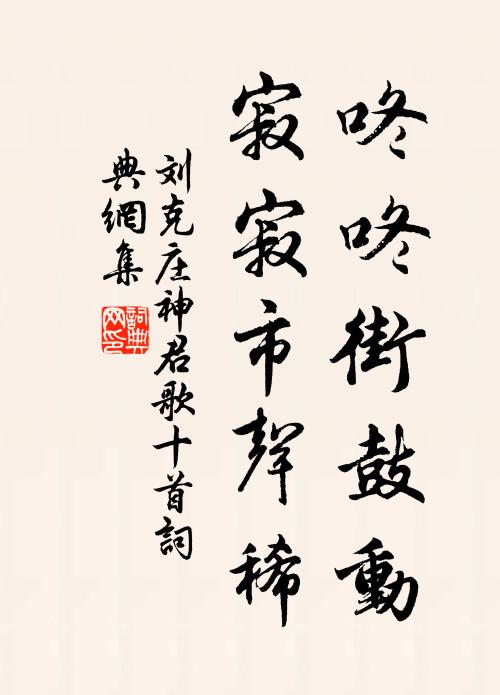 咚咚街鼓動
寂寂市聲稀
刘克庄神君歌十首詞
典網集
詞典
网印